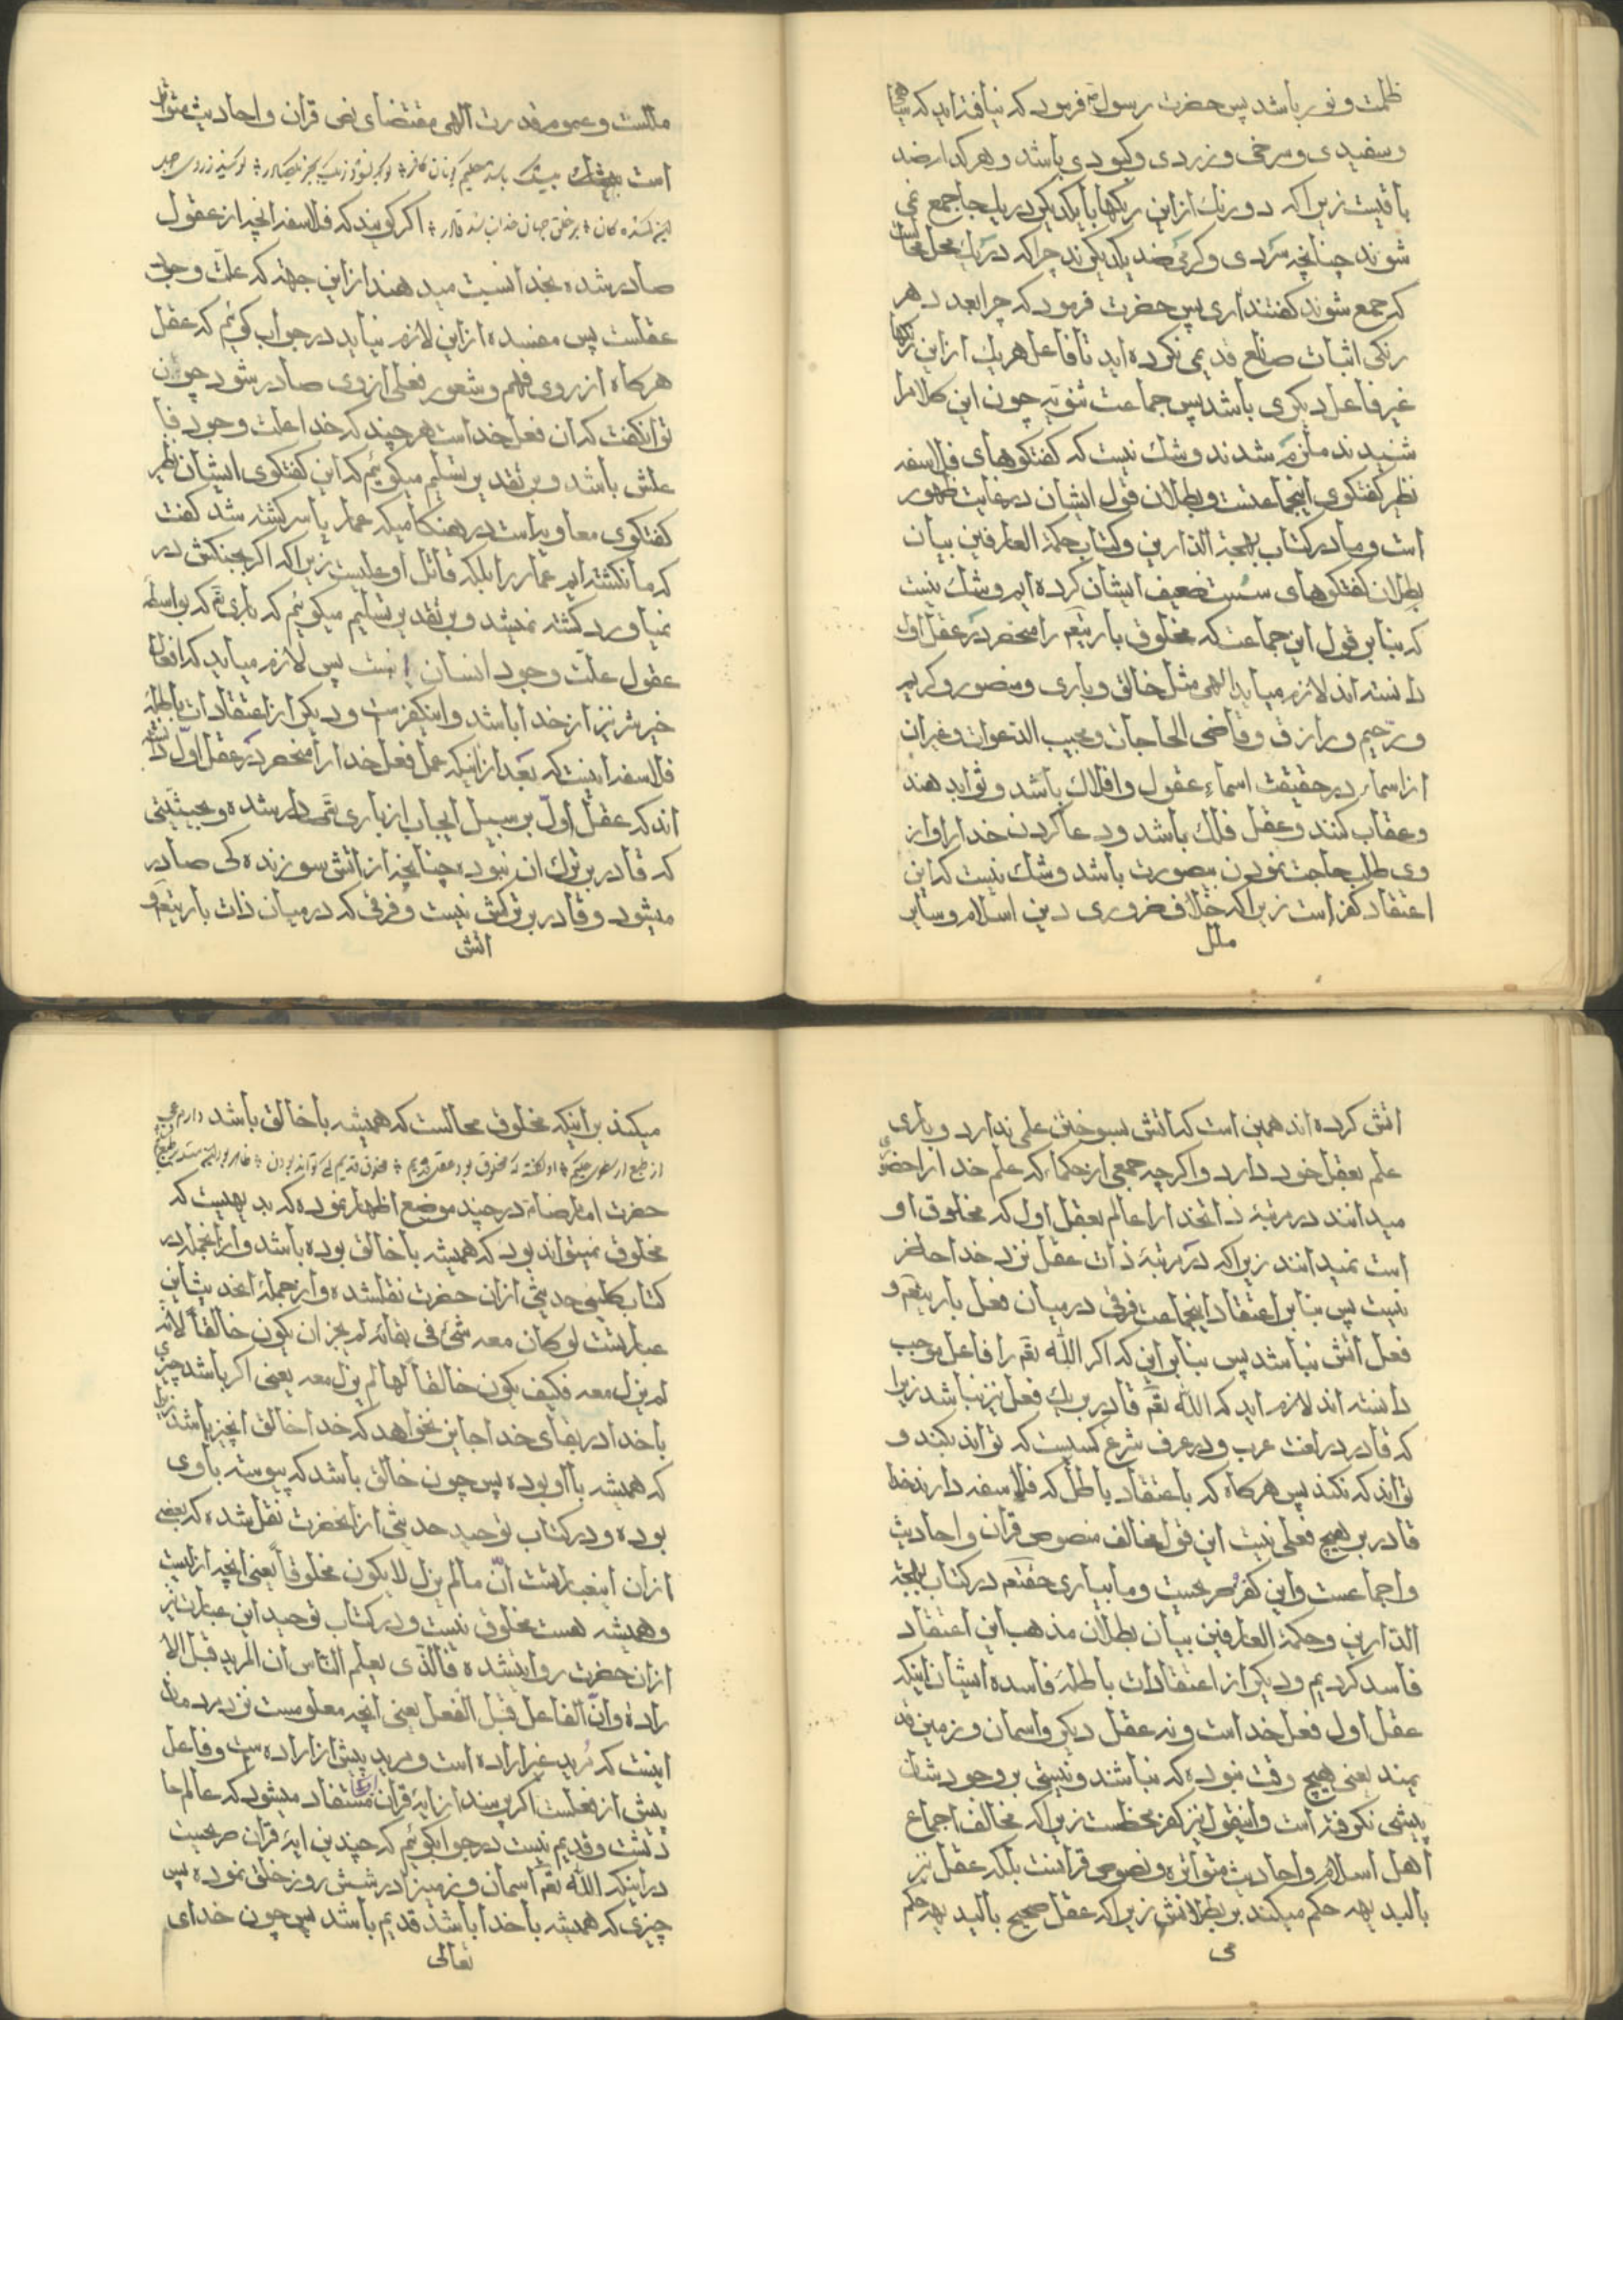 ظلمت و نور باشد پس حضرت رسول ص فرمود که نیافته‌اید که سیاهی
و سفیدی و سرخی و زردی و کبودی باشد و هر کدام ضد
باقیست زیرا که دو رنک از این رنکها با یکدیکر در یک جا جمع نمی
شوند چنانچه سردی و کرمی ضد یکدیکرند چرا که در یک محل محالست
که جمع شوند کفتند اری پس حضرت فرمود که چرا بعدد هر
رنکی اثبات صانع قدیمی نکرده اید تا فاعل هر یک از این رنکها
غیر فاعل دیکری باشد پس جماعت ثنویه چون این کلام را
شنیدند ملزم شدند و شک نیست که کفتکوهای فلاسفه
نظیر کفتکوی اینجماعتست و بطلان قول ایشان در غایت ظهور
است و ما در کتاب بهجة الدارین و کتاب حکمة العارفین بیان
بطلان کفتکوهای سست ضعیف ایشان کرده ایم و شک نیست
که بنابر قول این جماعت که مخلوق باریتعم را منحصر در عقل اول
دانسته اند لازم میاید الهی مثل خالق و باری و مصور و کریم
و رحیم و رازق و قاضی الحاجات و مجیب الدعوات و غیر ان
از اسماء در حقیقت اسماء عقول و افلاک باشد و ثواب دهند
و عقاب کنند و عقل فلک باشد و دعا کردن خدا را و از
وی طلب حاجت نمودن بیصورت باشد و شک نیست که این
اعتقاد کفر است زیرا که خلاف ضروری دین اسلام و سایر
ملل
مللست و عموم قدرت الهی مقتضای نص قران و احادیث متواتر
است بیشک
اکر کویند که فلاسفه انچه از عقول
صادر شده بخدا نسبت میدهند از این جهة که علت وجود
عقلست پس مفسده از این لازم نیاید در جواب کوئم که عقل
هرکاه از روی فهم و شعور فعلی از وی صادر شود چون
توان کفت که ان فعل خداست هر چند که خدا علت وجود فا
علش باشد و بر تقدیر تسلیم میکوئیم که این کفتکوی ایشان نظیر
کفتکوی معاویه است در هنکامیکه عمار یاسر کشته شد کفت
که ما نکشته ایم عمار را بلکه قاتل او علیست زیرا که اکر بجنکش در
نمیاورد کشته نمیشد و بر تقدیر تسلیم میکوئیم که باری تعم که بواسطه
عقول علت وجود انسان است پس لازم میاید که افعال
خیر و شر نیز از خدا باشد و اینکفرست و دیکر از اعتقادات باطله
فلاسفه اینست که بعد از انکه عمل فعل خدا را منحصر در عقل اول دانسته
اند که عقل اول بر سبیل ایجاب از باری تعم صادر شده و بحیثیتی
که قادر بر ترک ان نبوده چنانچه از اتش سوزنده کی صادر
میشود و قادر بر ترکش نیست و فرقی که در میان ذات باریتعم و
اتش
اتش کرده اند همین است که اتش بسوختن علمی ندارد و باری
علم بفعل خود دارد و اکرچه جمعی از حکماء که علم خدا را حضوری
میدانند در مرتبۀ ذاتخدا را عالم بعقل اول که مخلوق او
است نمیدانند زیرا که در مرتبۀ ذات عقل نزد خدا حاضر
نیست پس بنابر اعتقاد اینجماعت فرقی در میان فعل باریتعم و
فعل اتش نباشد پس بنابر این که اکر الله تعم را فاعل موجب
دانسته اند لازم اید که الله تعم قادر بر یک فعل نیز نباشد زیرا
که قادر در لغت عرب و در عرف شرع کسیست که تواند بکند و
تواند که نکند پس هرکاه که باعتقاد باطل که فلاسفه دارند خدا
قادر بر هیچ فعلی نیست این قول مخالف نصوص قران و احادیث
و اجماعست و این کفر صریحست و ما بیاری حقتعم در کتاب بهجة
الدارین و حکمة العارفین بیان بطلان مذهب این اعتقاد
فاسد کردیم و دیکر از اعتقادات باطلۀ فاسده ایشان اینکه
عقل اول فعل خداست و نه عقل دیکر و اسمان و زمین قد
یمند یعنی هیچ وقت نبوده که نباشند و نیستی بر وجودشان
پیشی نکرفته است و اینقول نیز کفر محظست زیرا که مخالف اجماع
اهل اسلام و احادیث متواتره و نصوص قرانست بلکه عقل نیز
بالبدیهه حکم میکند بر بطلانش زیرا که عقل صحیح بالبدیهه حکم
می
میکند بر اینکه مخلوق محالست که همیشه با خالق باشد دارم عجب
حضرت امام رضا ع در چند موضع اظهار نموده که بدیهیست که
مخلوق نمیتواند بود که همیشه با خالق بوده باشد و از انجمله در
کتاب کلینی حدیثی از ان حضرت نقلشده و از جملۀ انحدیث این
عبارتست لو کان معه شئ فی بقائه لم یجز ان یکون خالقا لانه
لم یزل معه فکیف یکون خالقا لها لم یزل معه یعنی اکر باشد چیزی
با خدا در بقای خدا جایز نخواهد که خدا خالق انچیز باشد زیرا
که همیشه با او بوده پس چون خالق باشد که پیوسته با وی
بوده و در کتاب توحید حدیثی از انحضرت نقل شده که بعضی
از ان اینعبارتست ان ما لم یزل لا یکون مخلوقا یعنی انچه ازلیست
و همیشه هست مخلوق نیست و در کتاب توحید این عبارت نیز
از ان حضرت روایتشده فالذی یعلم الناس ان المرید قبل الا
رادة و ان الفاعل قبل الفعل یعنی انچه معلومست نزد مردمان
اینست که مرید غیر اراده است و مرید پیش از اراده ست و فاعل
پیش از فعلست اکر پرسند از ایۀ قران مستفاد میشود که عالم حا
دثست و قدیم نیست در جوابکوئم که چندین ایۀ قران صریحست
در اینکه الله تعم اسمان و زمین را در شش روز خلق نموده پس
چیزی که همیشه با خدا باشد قدیم باشد پس چون خدای
تعالی